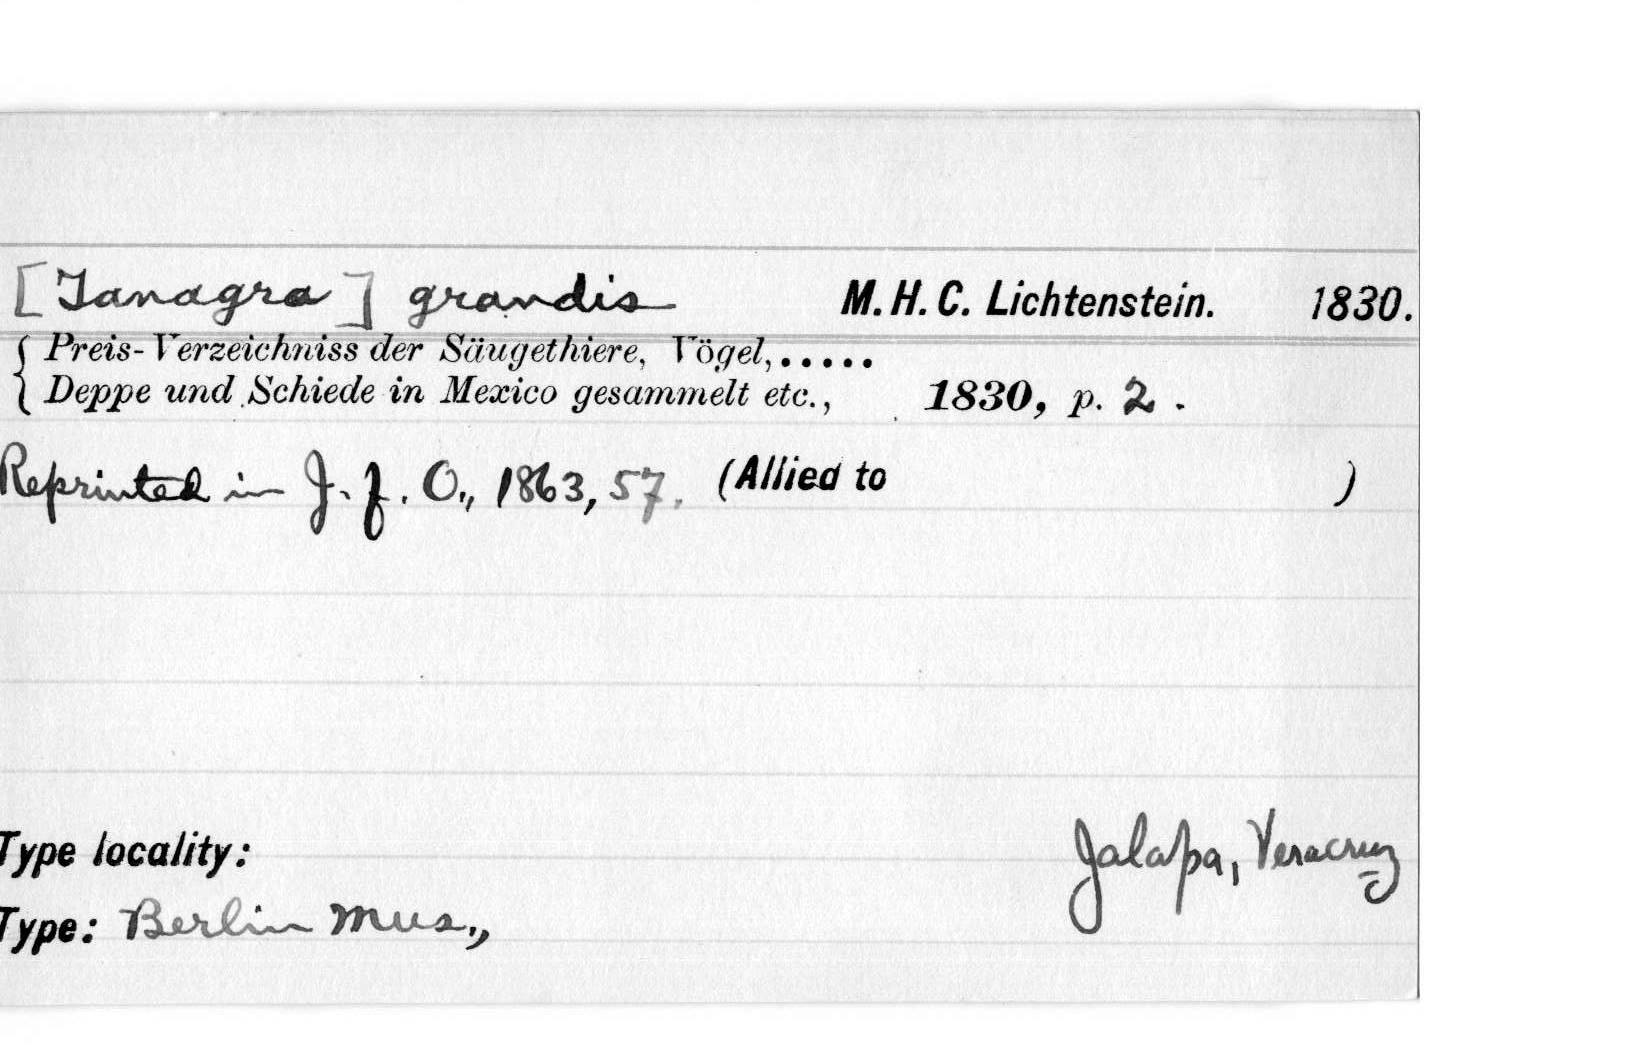 [Tanagra] grandis M. H. C. Lichtenstein. 1830.
Preis-Verzeichniss der Säugethiere, Vögel,.....
Deppe und Schiede in Mexico gesammelt etc., 1830, p. 2.
Reprinted in J. f. O., 1863, 57. (Allied to )
Type locality: Jalapa, Veracruz
Type: Berlin Mus.,